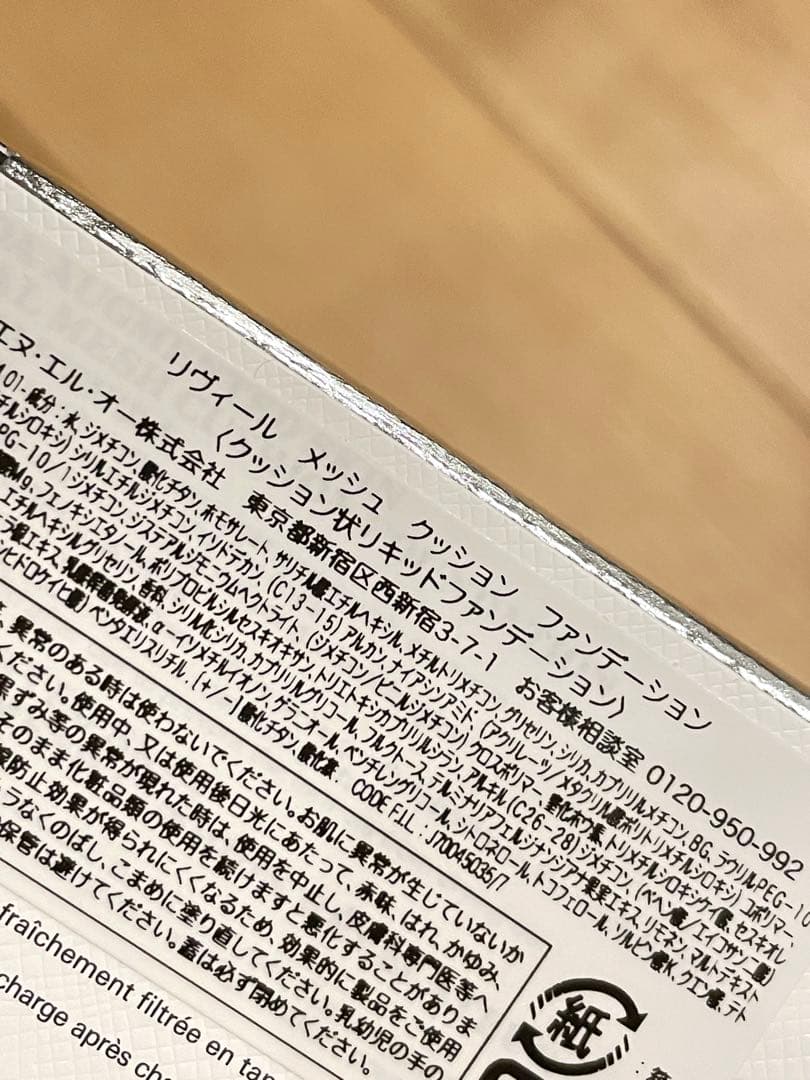 リヴィール メッシュ クッション ファンデーション
〈クッション状リキッドファンデーション〉
エヌ・エル・オー株式会社 東京都新宿区西新宿3-7-1 お客様相談室 0120-950-992
成分：水、ジメチコン、酸化チタン、ホモサレート、サリチル酸エチルヘキシル、メチルトリメチコン、グリセリン、シリカ、カプリリルメチコン、BG、ラウリルPEG-10
チルシロキシ)シリルエチルジメチコン、イソドデカン、(C13-15)アルカン、ナイアシンアミド、(アクリレーツ/メタクリル酸ポリトリメチルシロキシ)コポリマー、
PG-10/1ジメチコン、ジステアルジモニウムヘクトライト、(ジメチコン/ビニルジメチコン)クロスポリマー、窒化ホウ素、トリメチルシロキシケイ酸、セスキオレ
Mg、フェノキシエタノール、ポリプロピルシルセスキオキサン、トリエトキシカプリリルシラン、アルキル(C26-28)ジメチコン、(ベヘン酸/エイコサン二酸)
エチルヘキシルグリセリン、香料、シリル化シリカ、カプリリルグリコール、フルクトース、テルミナリアフェルジナンジアナ果実エキス、リモネン、マルトデキスト
根エキス、乳酸桿菌発酵液、α-イソメチルイオノン、ゲラニオール、ペンチレングリコール、シトロネロール、トコフェロール、ソルビン酸K、クエン酸、テト
ヒドロケイヒ酸)ペンタエリスリチル、[+/-]酸化チタン、酸化鉄． CODE F.I.L.:J70045035/7
異常のある時は使わないでください。お肌に異常が生じていないか
使用中、又は使用後日光にあたって、赤味、はれ、かゆみ、
黒ずみ等の異常が現れた時は、使用を中止し、皮膚科専門医等へ
そのまま化粧品類の使用を続けますと悪化することがありま
防止効果が得られにくくなるため、効果的に製品をご使用
うなくのばし、こまめに塗り直してください。乳幼児の手の
保管は避けてください。蓋は必ず閉めてください。
紙
fraîchement filtrée en
charge après